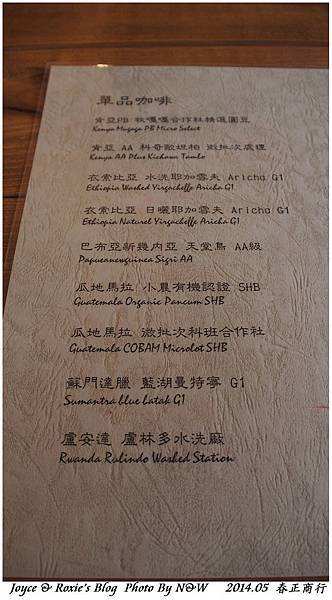 單品咖啡
肯亞PB 牧嘎嘎合作社精選圓豆
Kenya Mugaga PB Micro Select
肯亞 AA 科奇歐坦柏 微批次處理
Kenya AA Plus Kichawa Tambo
衣索比亞 水洗耶加雪夫 Aricha G1
Ethiopia Washed Yirgacheffe Aricha G1
衣索比亞 日曬耶加雪夫 Aricha G1
Ethiopia Naturel Yirgacheffe Aricha G1
巴布亞新幾內亞 天堂鳥 AA級
Papueanewguinea Sigri AA
瓜地馬拉 小農有機認證 SHB
Guatemala Organic Pancum SHB
瓜地馬拉 微批次科班合作社
Guatemala COBAM Microlot SHB
蘇門達臘 藍湖曼特寧 G1
Sumantra blue Latak G1
盧安達 盧林多水洗廠
Rwanda Rulindo Washed Station
Joyce & Roxie's Blog Photo By N&W 2014.05 春正商行